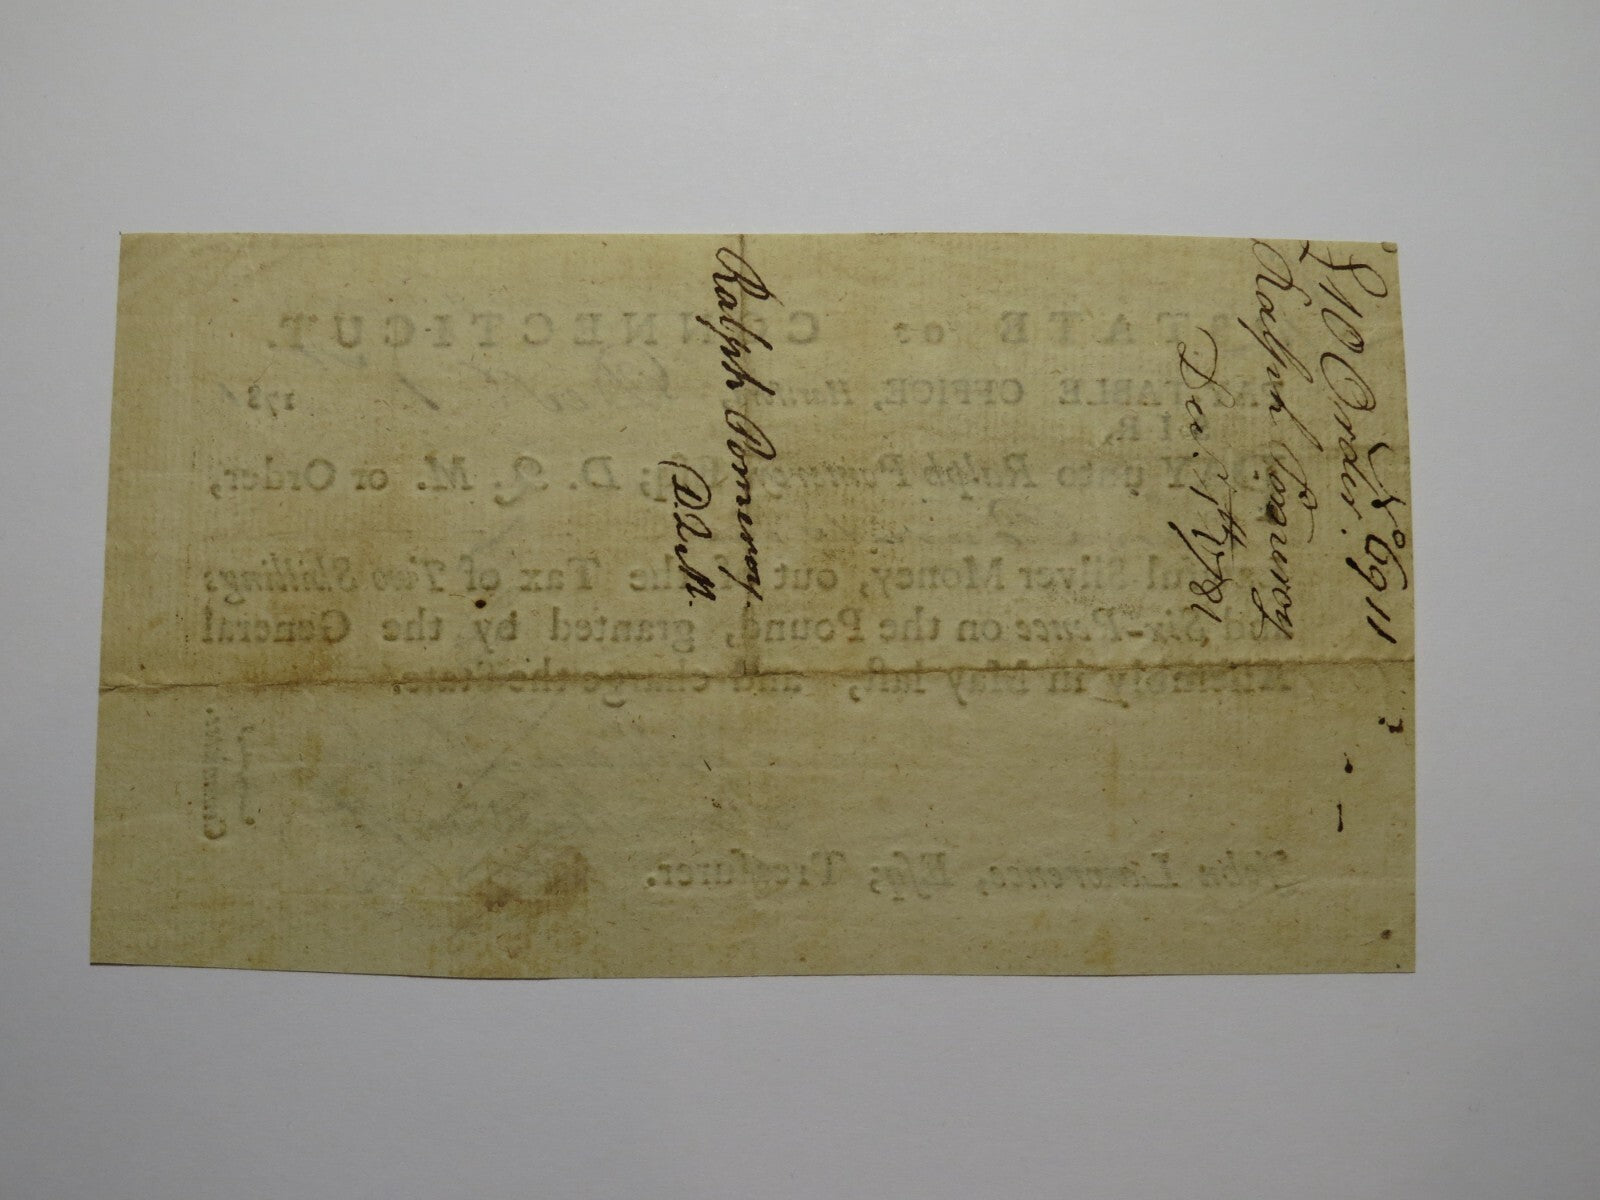 No 6911
£10 Order.
Ralph Pomeroy
Dec. 1781
Ralph Pomeroy.
D.Q.M.
STATE OF CONNECTICUT.
PAY-TABLE OFFICE, Hartford, 1781
SIR,
PAY unto Ralph Pomeroy, Esq; D. Q. M. or Order,
Lawful Silver Money, out of the Tax of Two Shillings
and Six-Pence on the Pound, granted by the General
Assembly in May last, and charge the State.
Committee.
John Lawrence, Esq; Treasurer.